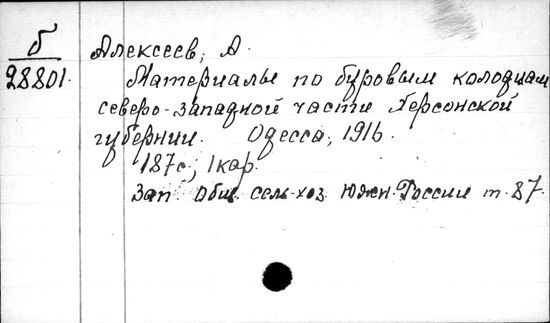 б
28801.
Алексеев, А.
Материалы по буровым колодцам
северо-западной части Херсонской
губернии. Одесса, 1916.
187с., 1 кар.
Зап. Общ. сель-хоз. Южн. России т. 87.